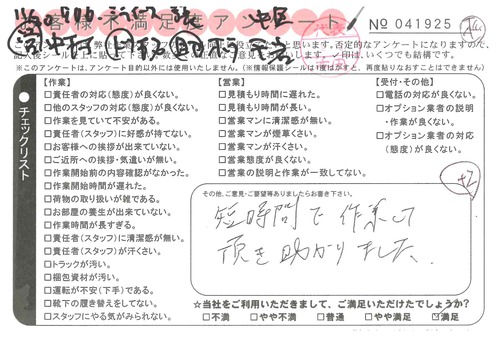 お客様不満足度アンケート
No 041925
※このアンケートは、アンケート目的以外には使用いたしません。(※情報保護シールは1度はがすと、再度貼りなおすことはできません)
チェックリスト
【作業】
□責任者の対応(態度)が良くない。
□他のスタッフの対応(態度)が良くない。
□作業を見ていて不安がある。
□責任者(スタッフ)に好感が持てない。
□お客様への挨拶が出来ていない。
□ご近所への挨拶・気遣いが無い。
□作業開始前の内容確認がなかった。
□作業開始時間が遅れた。
□荷物の取り扱いが雑である。
□お部屋の養生が出来ていない。
□作業時間が長すぎる。
□責任者(スタッフ)に清潔感が無い。
□責任者(スタッフ)が汗くさい。
□トラックが汚い。
□梱包資材が汚い。
□運転が不安(下手)である。
□靴下の履き替えをしてない。
□スタッフにやる気がみられない。
【営業】
□見積もり時間に遅れた。
□見積もり時間が長い。
□営業マンに清潔感が無い。
□営業マンが煙草くさい。
□営業マンが汗くさい。
□営業態度が良くない。
□営業の説明と作業が一致してない。
【受付・その他】
□電話の対応が良くない。
□オプション業者の説明
・作業が良くない。
□オプション業者の対応
(態度)が良くない。
その他、ご意見・ご要望等ありましたらお書き下さい。
短時間で作業して
頂き助かりました。
☆当社をご利用いただきまして、ご満足いただけたでしょうか?
□不満 □やや不満 □普通 □やや満足 ☑満足